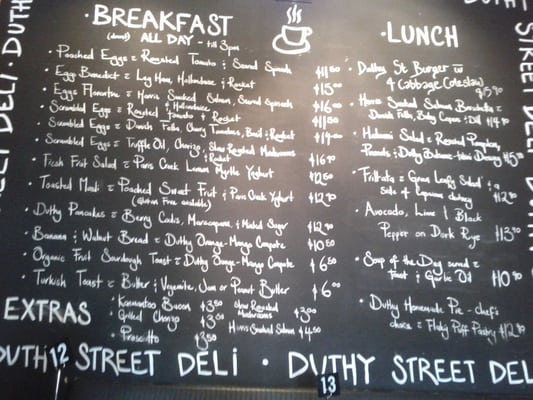 DUTHY STREET DELI
· BREAKFAST
(served) ALL DAY - till 3pm
· Poached Eggs w Roasted Tomato & Seared Spinach $11.50
· Eggs Benedict w Leg Ham, Hollandaise & Rocket $15.00
· Eggs Florentine w Harris Smoked Salmon, Seared Spinach & Hollandaise $16.00
· Scrambled Eggs w Roasted Tomato & Rocket $11.50
· Scrambled Eggs w Danish Fetta, Cherry Tomatoes, Basil & Rocket $14.00
· Scrambled Eggs w Truffle Oil, Chorizo, Slow Roasted Mushrooms & Rocket $16.90
· Fresh Fruit Salad w Paris Creek Lemon Myrtle Yoghurt $12.50
· Toasted Muesli w Poached Sweet Fruit & Paris Creek Yoghurt $12.90
(Gluten Free available)
· Duthy Pancakes w Berry Coulis, Mascarpone, & Minted Sugar $12.90
· Banana & Walnut Bread w Duthy Orange-Mango Compote $10.50
· Organic Fruit Sourdough Toast w Duthy Orange-Mango Compote $6.50
· Turkish Toast w Butter & Vegemite, Jam or Peanut Butter $6.00
EXTRAS
· Kanmantoo Bacon $3.50
· Grilled Chorizo $3.50
· Prosciutto $3.50
Slow Roasted Mushrooms $3.00
Harris Smoked Salmon $4.50
· LUNCH
· Duthy St Burger w
4 (Cabbage, Coleslaw) $15.90
· Harris Smoked Salmon Bruschetta w
Danish Fetta, Baby Capers & Dill $14.90
· Haloumi Salad w Roasted Pumpkin,
& Duthy Balsamic Dressing $15.00
· Frittata w Green Leafy Salad & a
side of chutney $12.90
· Avocado, Lime & Black
Pepper on Dark Rye $13.90
· Soup of the Day served w
Toast & Garlic Oil $10.90
· Duthy Homemade Pie - chef's
choice w Flaky Puff Pastry $12.90
DUTHY STREET DELI · DUTHY STREET DELI
12
13